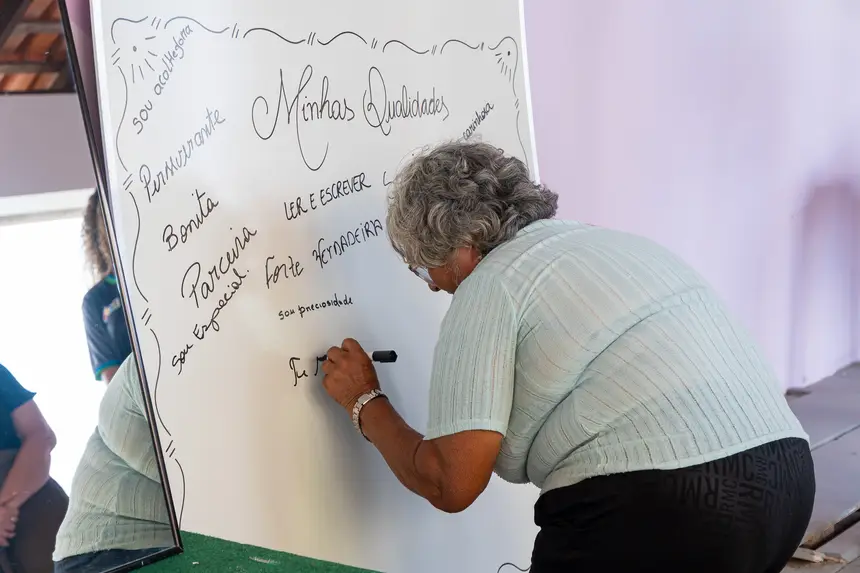 Minhas Qualidades
sou acolhedora
carinhosa
Perseverante
LER E ESCREVER
Bonita
Forte
VERDADEIRA
Parceira
sou Especial.
sou preciosidade